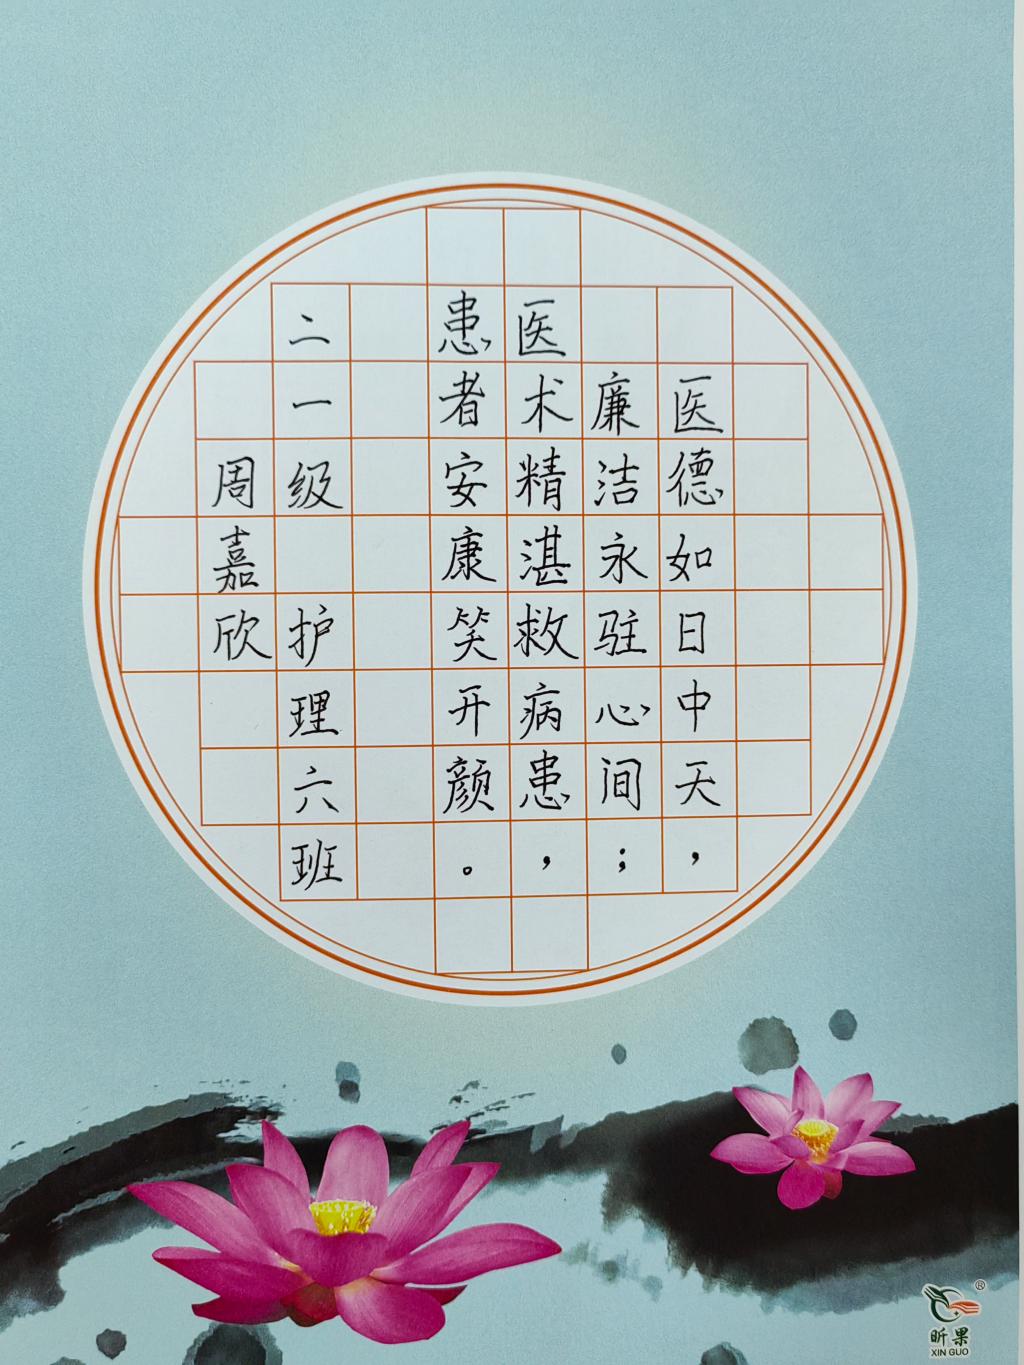 医德如日中天，
廉洁永驻心间；
医术精湛救病患，
患者安康笑开颜。
二一级 护理六班
周嘉欣
昕果
XIN GUO
®